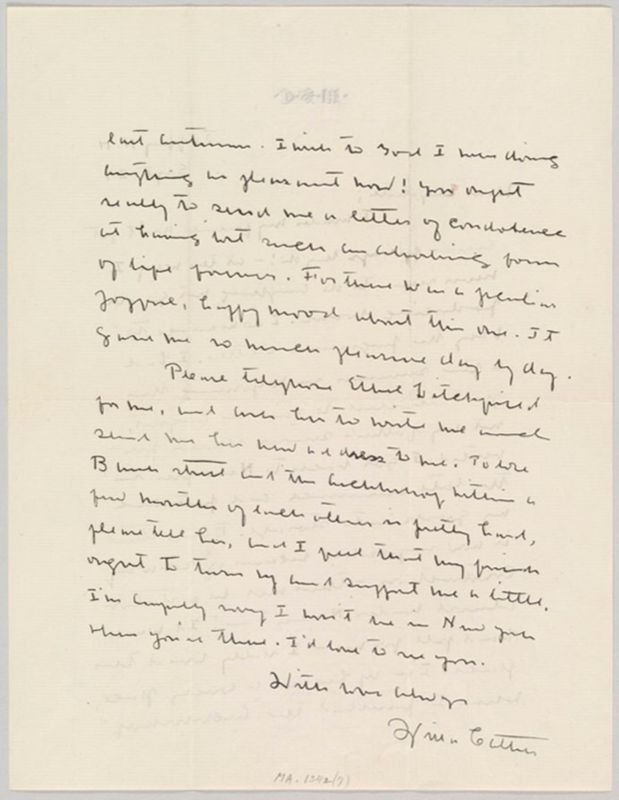 last autumn. I wish to God I were doing
anything as pleasant now! You ought
really to send me a letter of condolence
at having lost such an absorbing form
of life forever. For there was a peculiar
joyful, happy mood about this one. It
gave me so much pleasure day by day.
Please telephone Ethel Litchfield
for me, and ask her to write me and
send me her new address to me. To lose
Bank street and the Archbishop within a
few months of each other is pretty hard,
please tell her, and I feel that my friends
ought to turn up and support me a little.
I'm awfully sorry I won't be in New York
when you're there. I'd love to see you.
With love always
Willa Cather
MA. 1342(7)